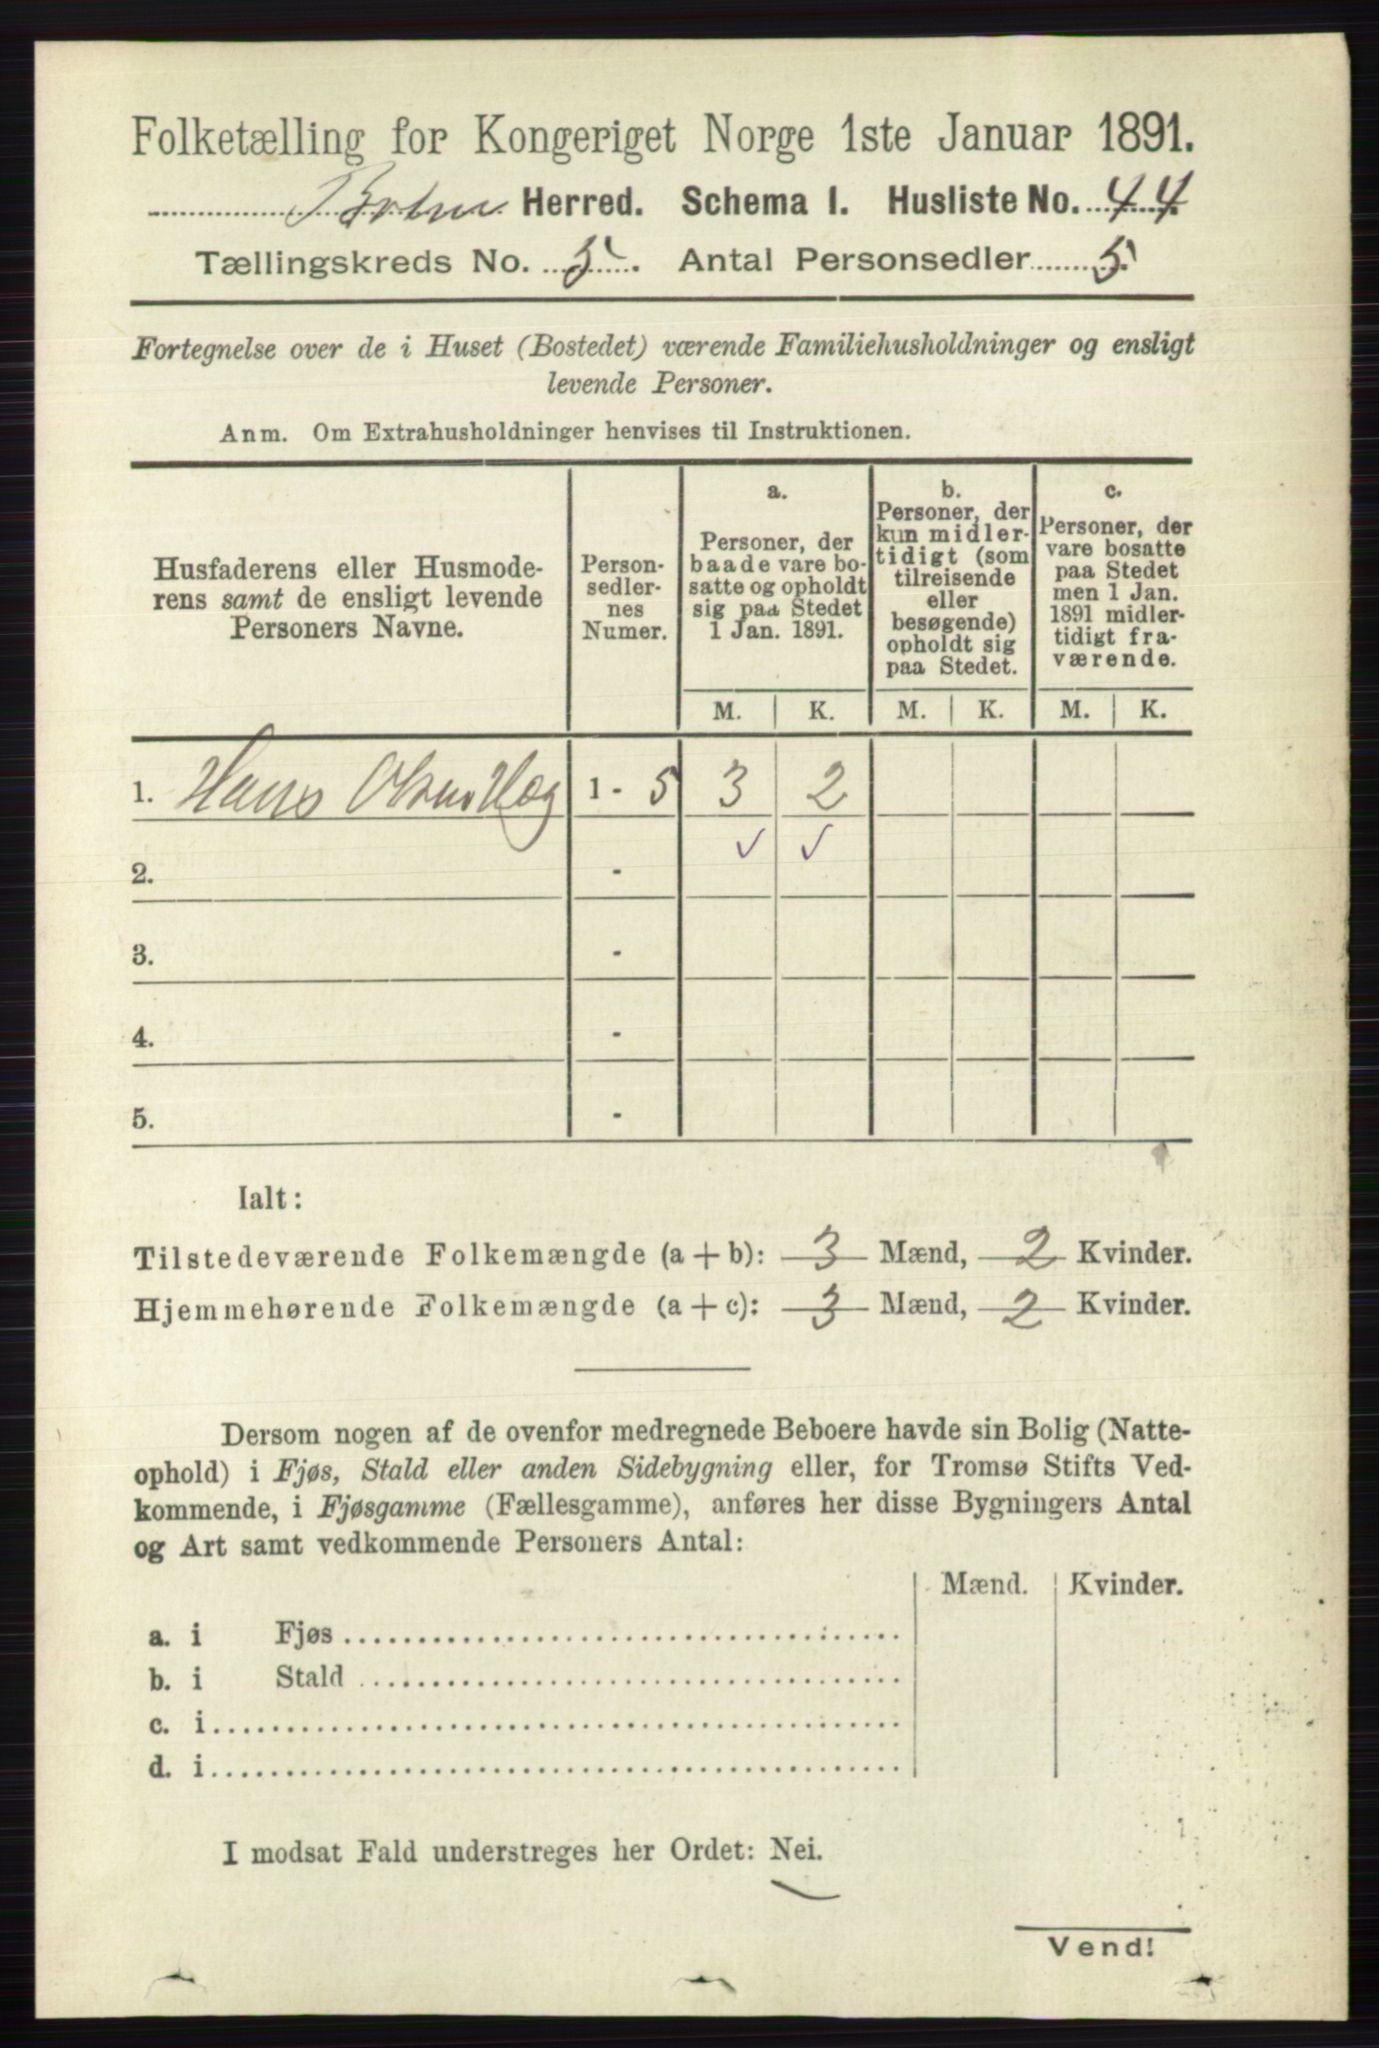 Folketælling for Kongeriget Norge 1ste Januar 1891.
Herred. Schema 1. Husliste No. 44.
Tællingskreds No. 5. Antal Personsedler 5.
Fortegnelse over de i Huset (Bostedet) værende Familiehusholdninger og ensligt
levende Personer.
Anm. Om Extrahusholdninger henvises til Instruktionen.
Husfaderens eller Husmode-
rens samt de ensligt levende
Personers Navne.
Person-
sedler-
nes
Numer.
a.
Personer, der
baade vare bo-
satte og opholdt
sig paa Stedet
1 Jan. 1891.
b.
Personer, der
kun midler-
tidigt (som
tilreisende
eller
besøgende)
opholdt sig
paa Stedet.
c.
Personer, der
vare bosatte
paa Stedet
men 1 Jan.
1891 midler-
tidigt fra-
værende.
M. K. M. K. M. K.
1. Hans Olsen 1 - 5 3 2
2. -
3. -
4. -
5. -
Ialt:
Tilstedeværende Folkemængde (a + b): 3 Mænd, 2 Kvinder.
Hjemmehørende Folkemængde (a + c): 3 Mænd, 2 Kvinder.
Dersom nogen af de ovenfor medregnede Beboere havde sin Bolig (Natte-
ophold) i Fjøs, Stald eller anden Sidebygning eller, for Tromsø Stifts Ved-
kommende, i Fjøsgamme (Fællesgamme), anføres her disse Bygningers Antal
og Art samt vedkommende Personers Antal:
Mænd. Kvinder.
a. i Fjøs
b. i Stald
c. i
d. i
I modsat Fald understreges her Ordet: Nei.
Vend!